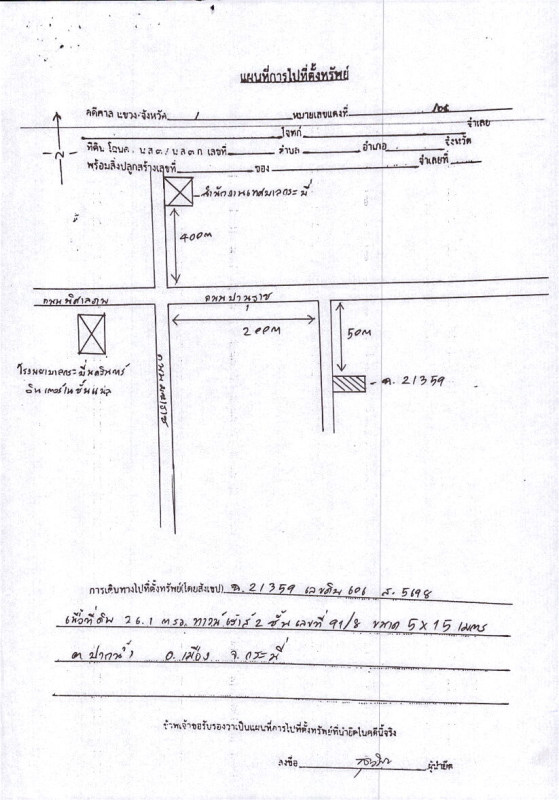 แผนที่การไปที่ตั้งทรัพย์
คดีศาล แขวง-จังหวัด / หมายเลขแดงที่ /๒๕
โจทก์ จำเลย
ที่ดิน โฉนด. น ส ๓ / น ส ๓ ก เลขที่ ตำบล อำเภอ จังหวัด
พร้อมสิ่งปลูกสร้างเลขที่ ของ จำเลยที่
สำนักงานเทศบาลกระบี่
400m
ถนนพิศาลภพ
200m
50m
โรงพยาบาลกระบี่นครินทร์
อินเตอร์เนชั่นแนล
ฉ. 21359
การเดินทางไปที่ตั้งทรัพย์(โดยสังเขป) ฉ. 21359 เลขดิน 606 ส. 5698
เนื้อที่ดิน 26.1 ตรว. ทาวน์เฮ้าส์ 2 ชั้น เลขที่ 91/8 ขนาด 5 x 15 เมตร
ต. ปากน้ำ อ. เมือง จ. กระบี่
ข้าพเจ้าขอรับรองว่าเป็นแผนที่การไปที่ตั้งทรัพย์ที่นำยึดในคดีนี้จริง
ลงชื่อ ผู้นำยึด